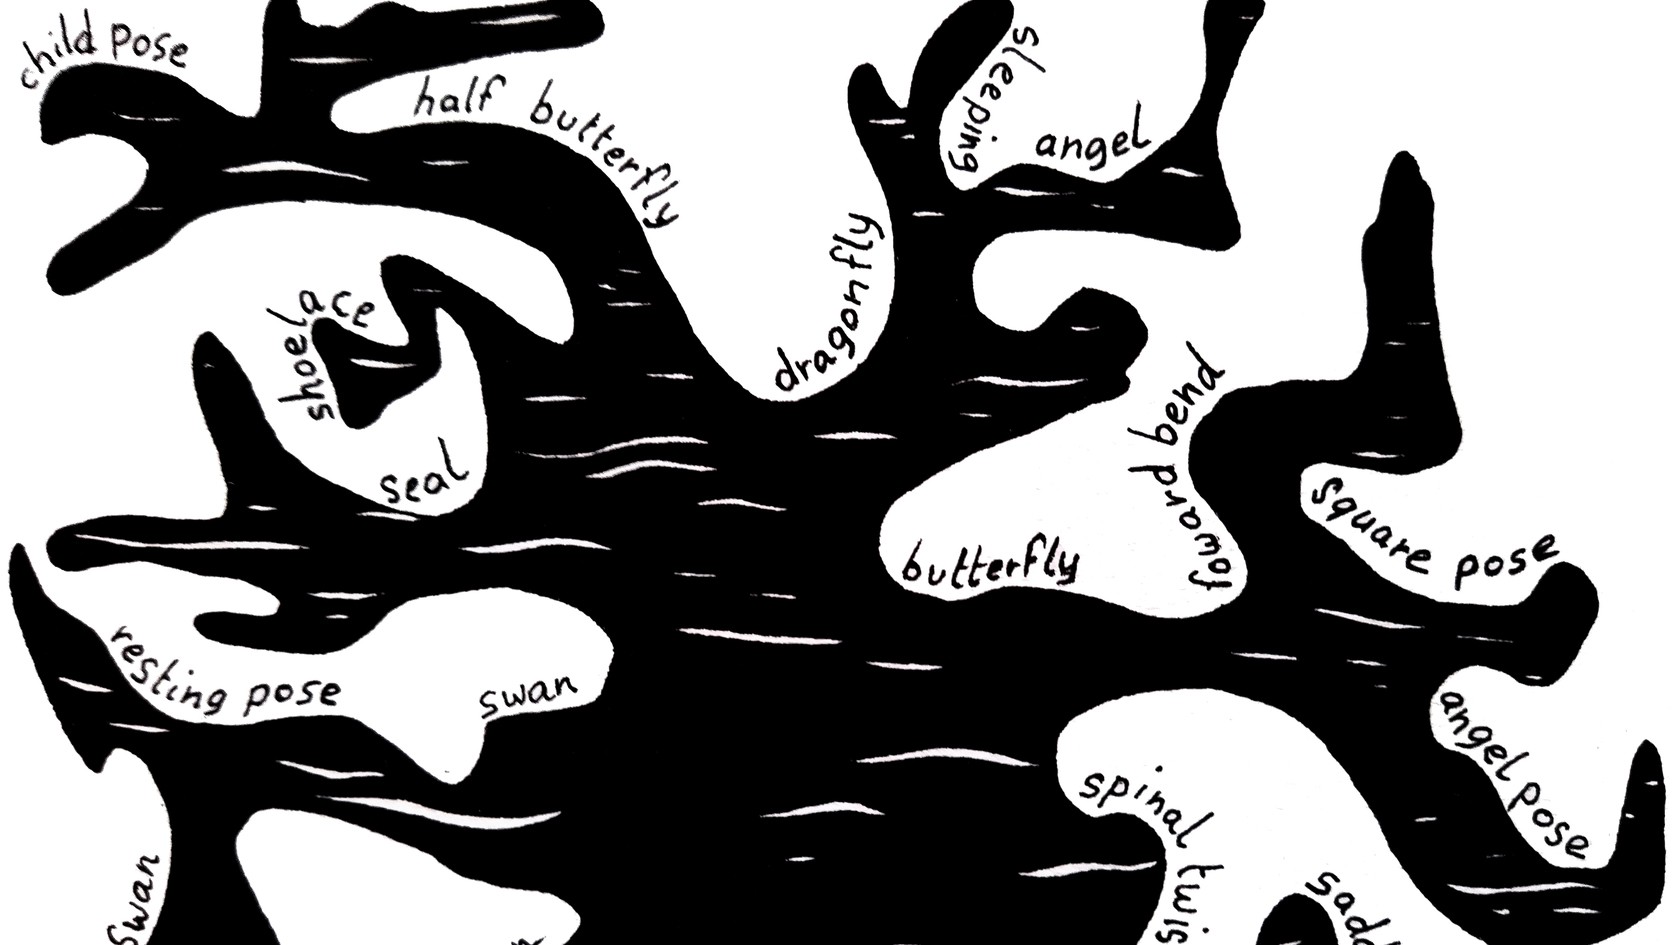 child pose
half butterfly
sleeping
angel
dragonfly
shoelace
seal
forward bend
butterfly
square pose
resting pose
swan
angel pose
spinal twis
swan
sadd